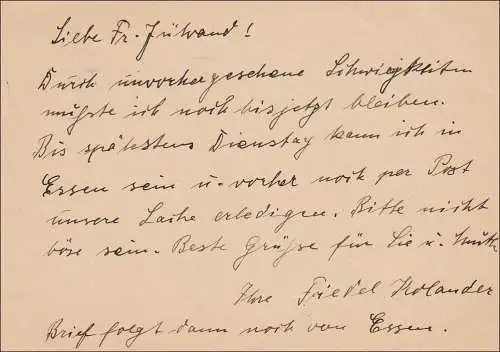 Liebe Fr. Jülvand!
Durch unvorhergesehene Schwiegkliten
muſste ich noch bis jetzt bleiben.
Bis spähstens Dienstag kann ich in
Essen sein u. vorher noch per Post
unsere Sache erledigen. Bitte nicht
böse sein. Beste Grüſse für Sie u.
Ihre Friedel Holander
Brief folgt dann noch von Essen.